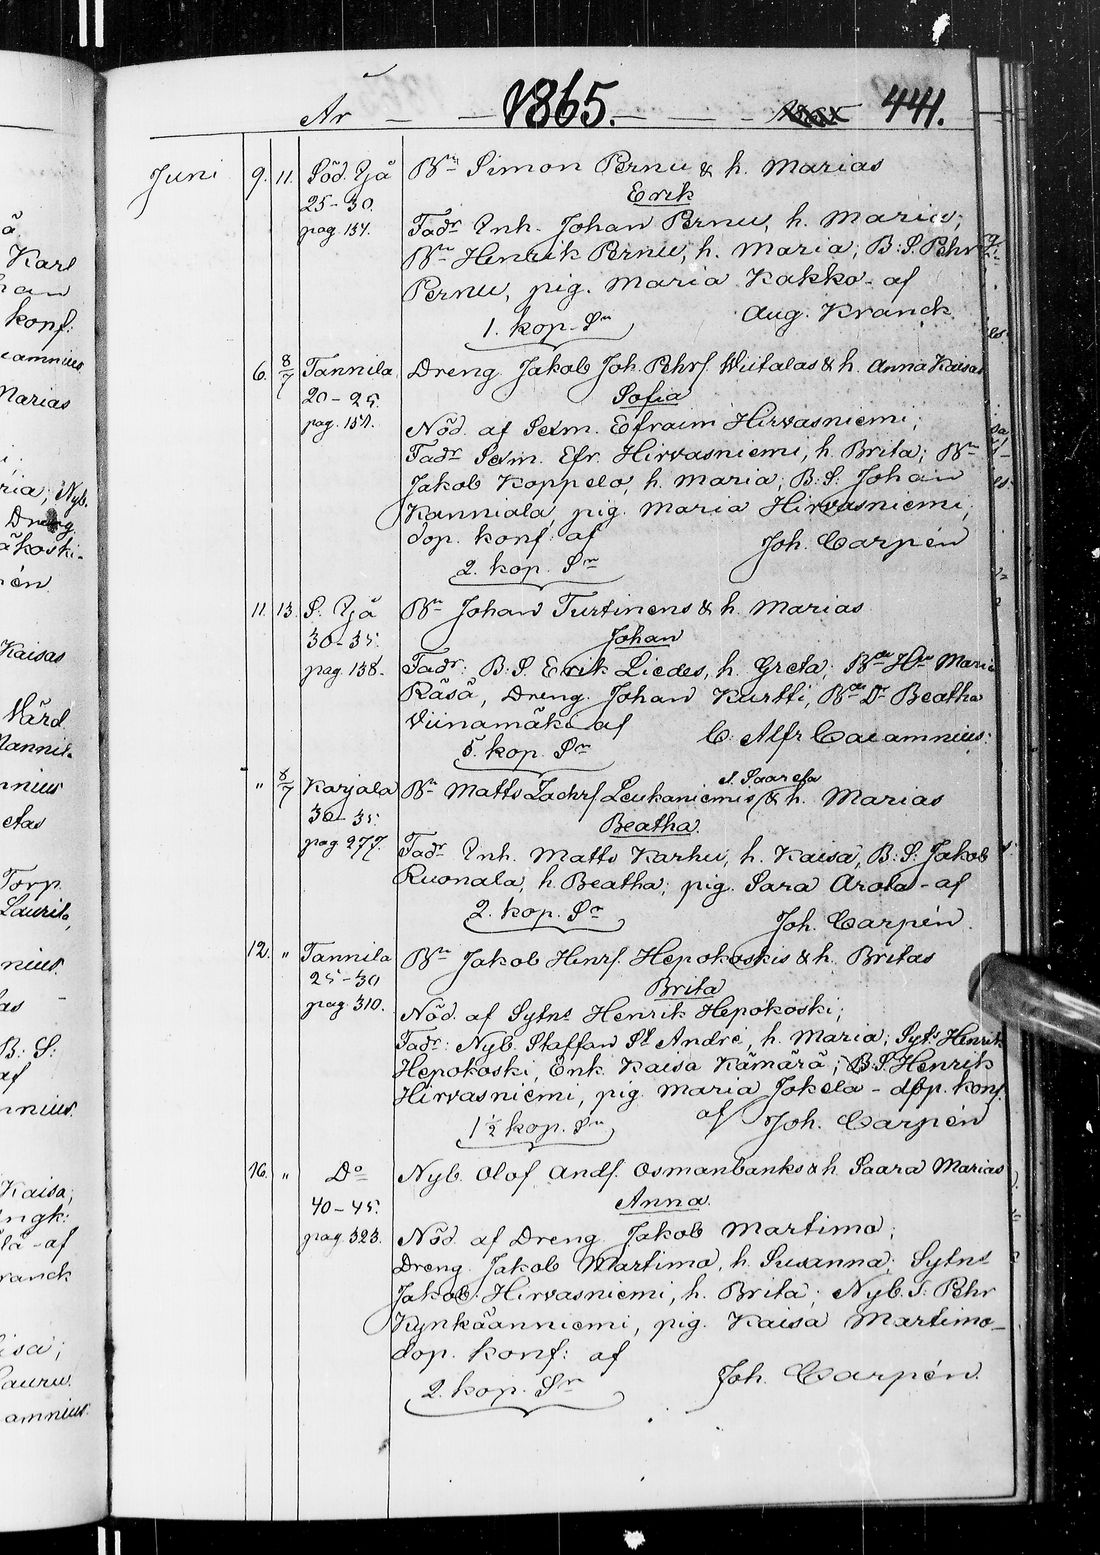 År 1865. 441.
Juni 9. 11. Söd. Yjå Bn Simon Pernu & h. Marias
25-30. Erik
pag. 154. Fadr Inh. Johan Pernu, h. Maria;
Bn Henrik Pernu, h. Maria; B: S. Pehr
Pernu, pig. Maria Kakko - af
1. kop. Sr Aug. Kranck.
6. 8/7 Tannila Dreng Jakob Joh. Pehrs. Wiitalas & h. Anna Kaisas
20-25. Sofia
pag. 157. Nöd. af Sexm. Efraim Hirvasniemi;
Fadr Sexm. Efr. Hirvasniemi, h. Brita; Bn
Jakob Koppelo, h. Maria; B: S. Johan
Kanniala, pig. Maria Hirvasniemi;
dop. konf: af Joh. Carpén
2. kop. Sr
11. 13. S. Yjå Bn Johan Turtinens & h. Marias
30-35. Johan
pag. 138. Fadr: B. S. Erik Liedes, h. Greta; Maria
Räsä, Dreng Johan Kurtti, Beatha
Viinamäki af C. Alfr Cajamnius:
5. kop. Sr
" 8/7 Karjala Bn Matts Zachrs Leukaniemis / l. Saarela / & h. Marias
30-35. Beatha.
pag 277. Fadr Inh. Matts Karhu, h. Kaisa, B: S: Jakob
Ruonala, h. Beatha; pig. Sara Arola - af
2. kop. Sr Joh. Carpén.
12. " Tannila Bn Jakob Hinrs. Hepokoskis & h. Britas
25-30 Brita
pag. 310. Nöd. af Sytns Henrik Hepokoski;
Fadr: Nyb. Staffan St André, h. Maria; Syts Henrik
Hepokoski, Enk. Kaisa Kämärä; B. S. Henrik
Hirvasniemi, pig. Maria Jokela - dop. konf.
1½ kop. Sr af Joh. Carpén
16. " Do Nyb. Olof Ands. Osmanbanks & h. Saara Marias
40-45. Anna.
pag. 323. Nöd. af Dreng Jakob Martimo;
Dreng Jakob Martimo, h. Susanna; Sytns
Jakob Hirvasniemi, h. Brita; Nyb. S: Pehr
Kynkäänniemi, pig. Kaisa Martimo -
dop. konf: af Joh. Carpén.
2. kop. Sr